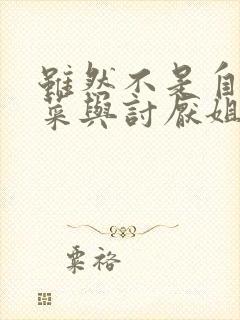 雖然不是自
菜與討厭姐
粟裕